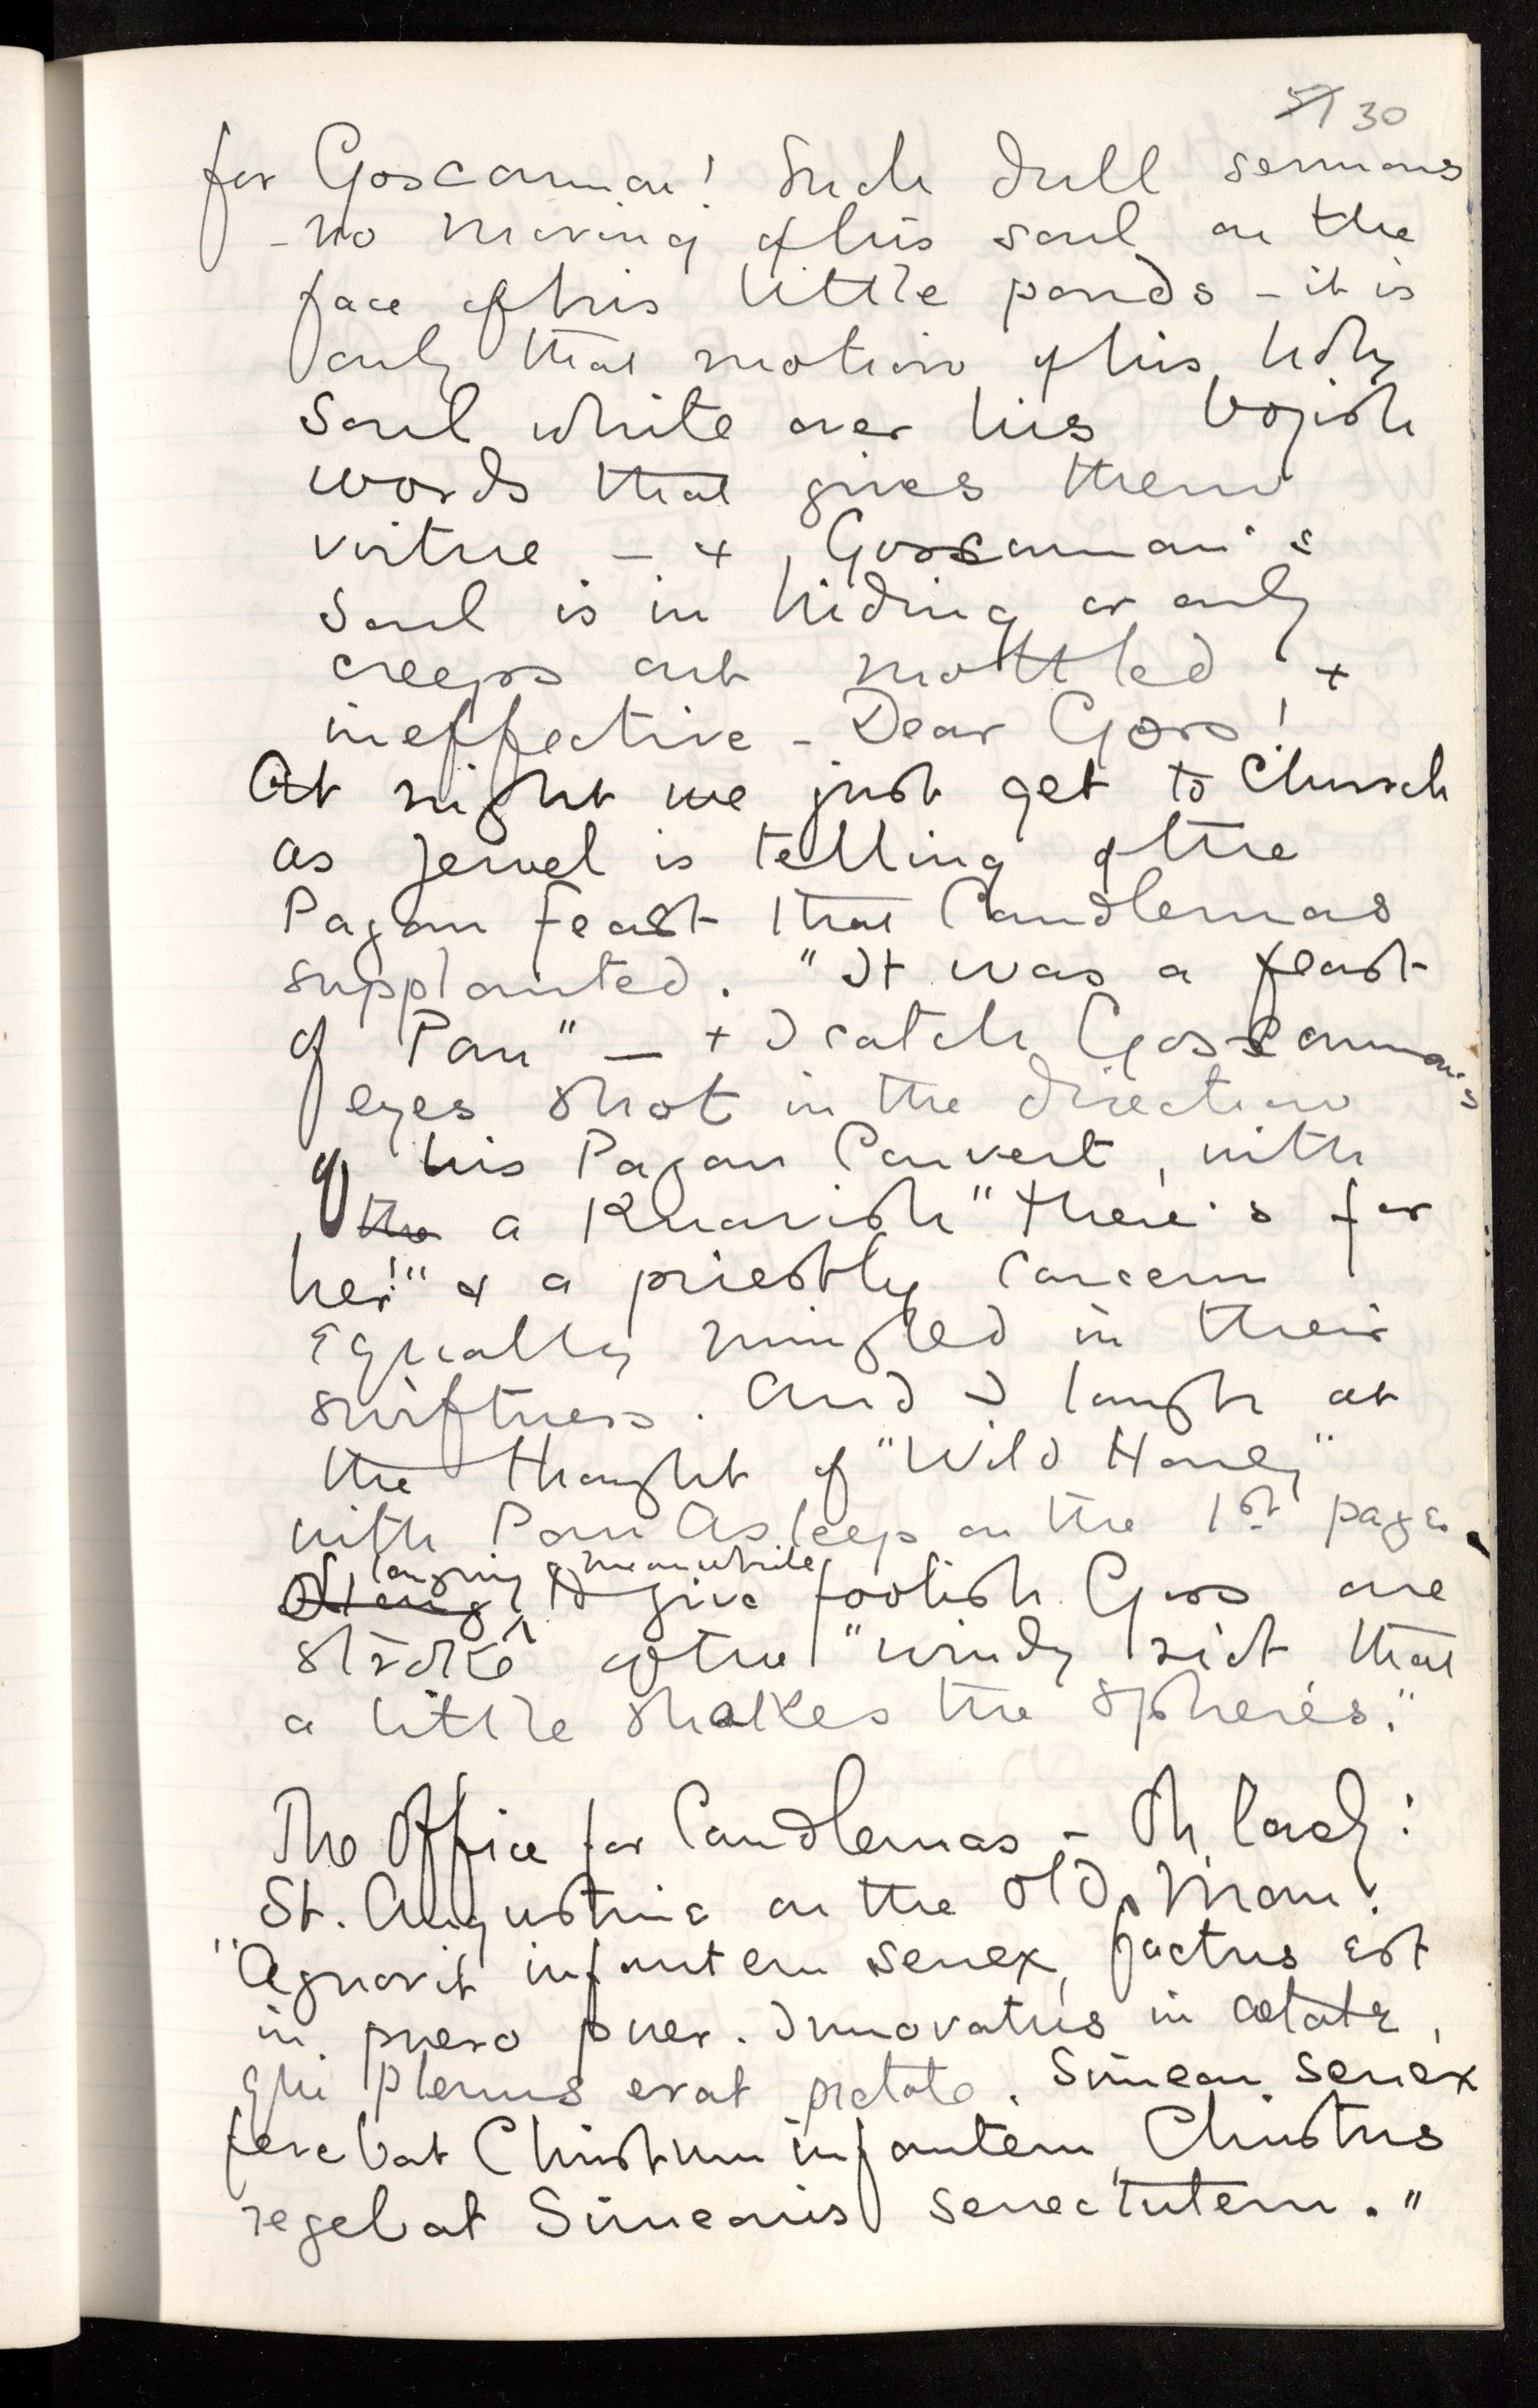 30
for Goscannon! Such dull sermons
- no moving of his soul on the
face of his little ponds - it is
only that motion of his holy
soul white over his boyish
words that gives them
virtue - + Goscannon's
soul is in hiding or only
creeps out mottled +
ineffective - Dear Goss!
At night we just get to Church
as Jewel is telling of the
Pagan Feast that Candlemas
supplanted. "It was a feast
of Pan" — + I catch Goscannon's
eyes shot in the direction
of his Pagan Convert, with
the a Knavish "there's for
her!" + a priestly concern
equally mingled in their
swiftness. And I laugh at
the thought of "Wild Honey"
with Pan Asleep on the 1st page.
longing meanwhile
to give foolish Goss one
stroke of the "windy riot that
a little shakes the spheres."
The Office for Candlemas - Oh lovely!
St. Augustine on the Old Man!
"Agnovit infantem senex, factus est
in puero puer. Innovatus in aetate,
qui plenus erat pietate. Simeon senex
ferebat Christum infantem, Christus
regebat Simeonis senectutem."